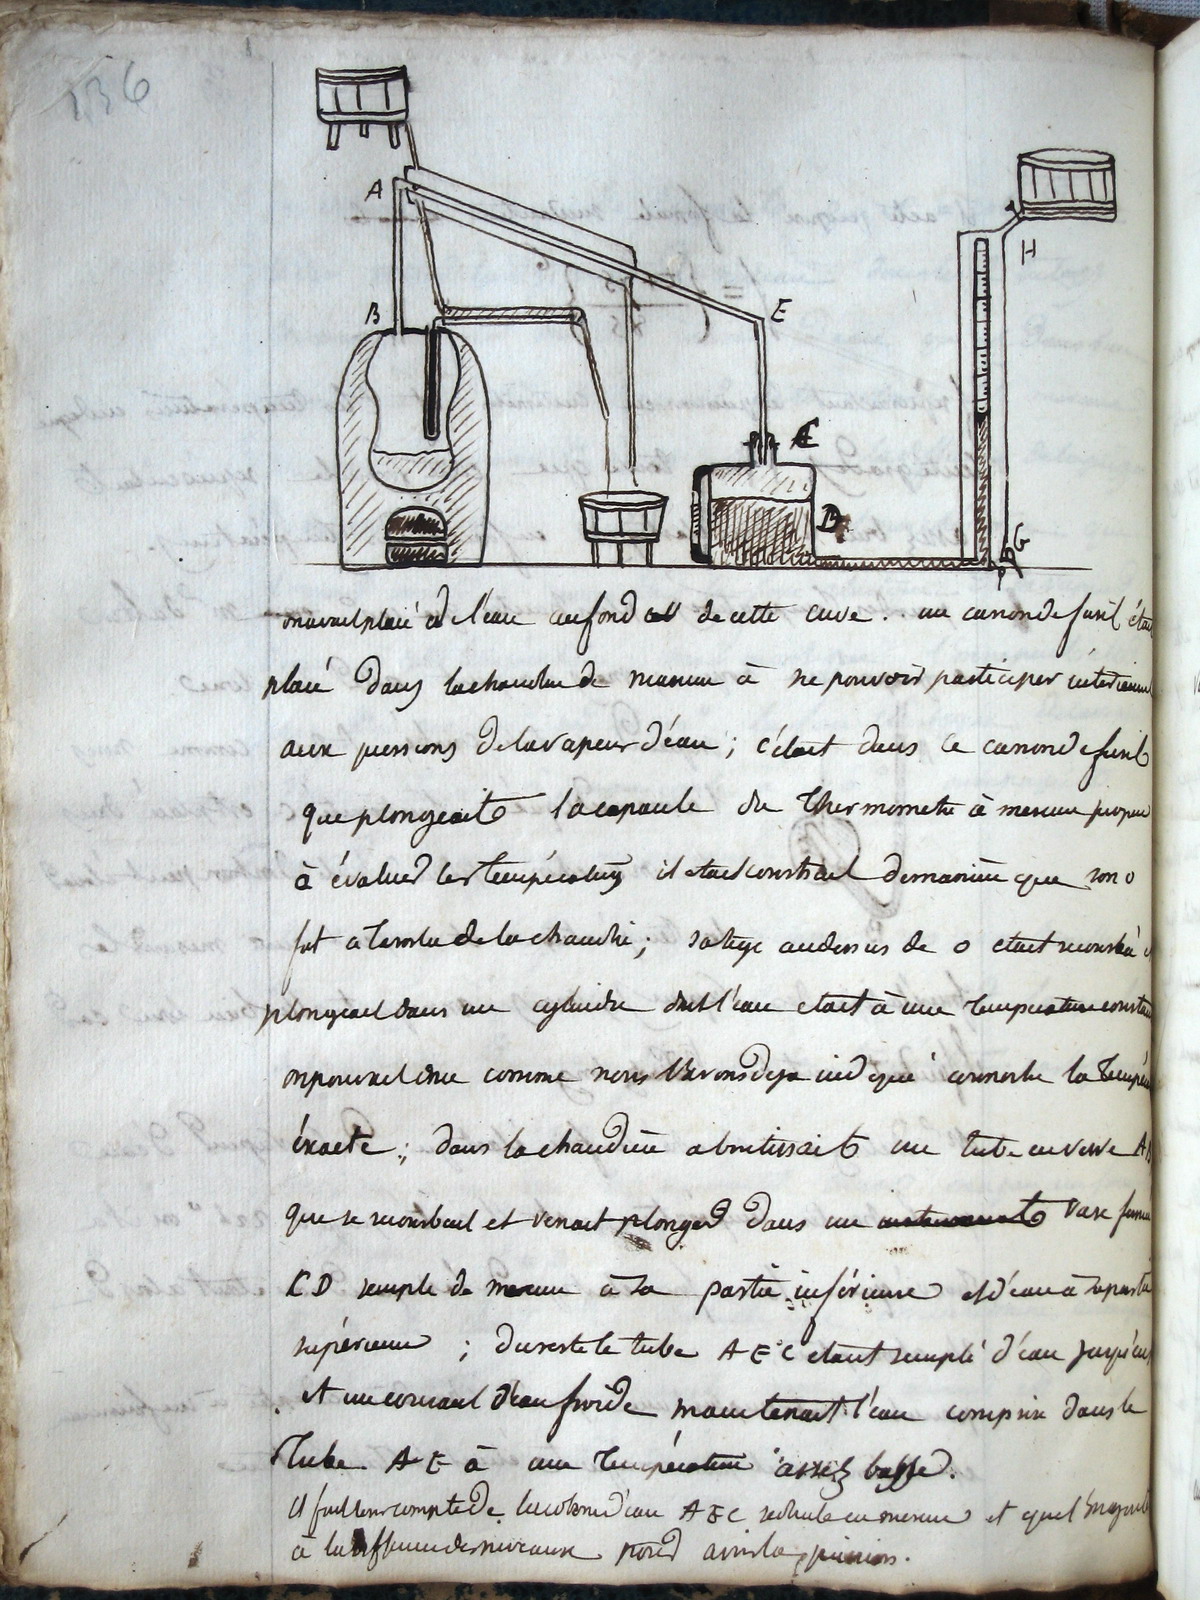 136
A
H
B
E
C
D
G
on avait placé de l'eau au fond de cette cuve .. un canon de fusil était
placé dans la chaudière de manière à ne pouvoir participer intérieurement
aux pressions de la vapeur d'eau ; c'était dans ce canon de fusil
que plongeait la capsule du thermomètre à mercure propre
à évaluer les températures il etait construit de manière que son 0
fut a la voute de la chaudière ; sa tige au dessus de 0 etait recourbée et
plongeait dans un cylindre dont l'eau etait à une température constante
on pouvait donc comme nous l'avons deja indiqué connoitre la temperature
éxacte ; dans la chaudière aboutissait un tube en verre AB
que se recourbait et venait plonger dans un vase fermé
CD remplie de mercure à sa partie inférieure et d'eau à sa partie
supérieure ; du reste le tube AEC etant remplé d'eau jusqu'en
A un courant d'eau froide maintenait l'eau comprise dans le
Tube AE à une température assez basse.
il faut tenir compte de la colonne d'eau AEC réduite en mercure et qui s'ajoute
à la différence des niveaux pour avoir la pression.